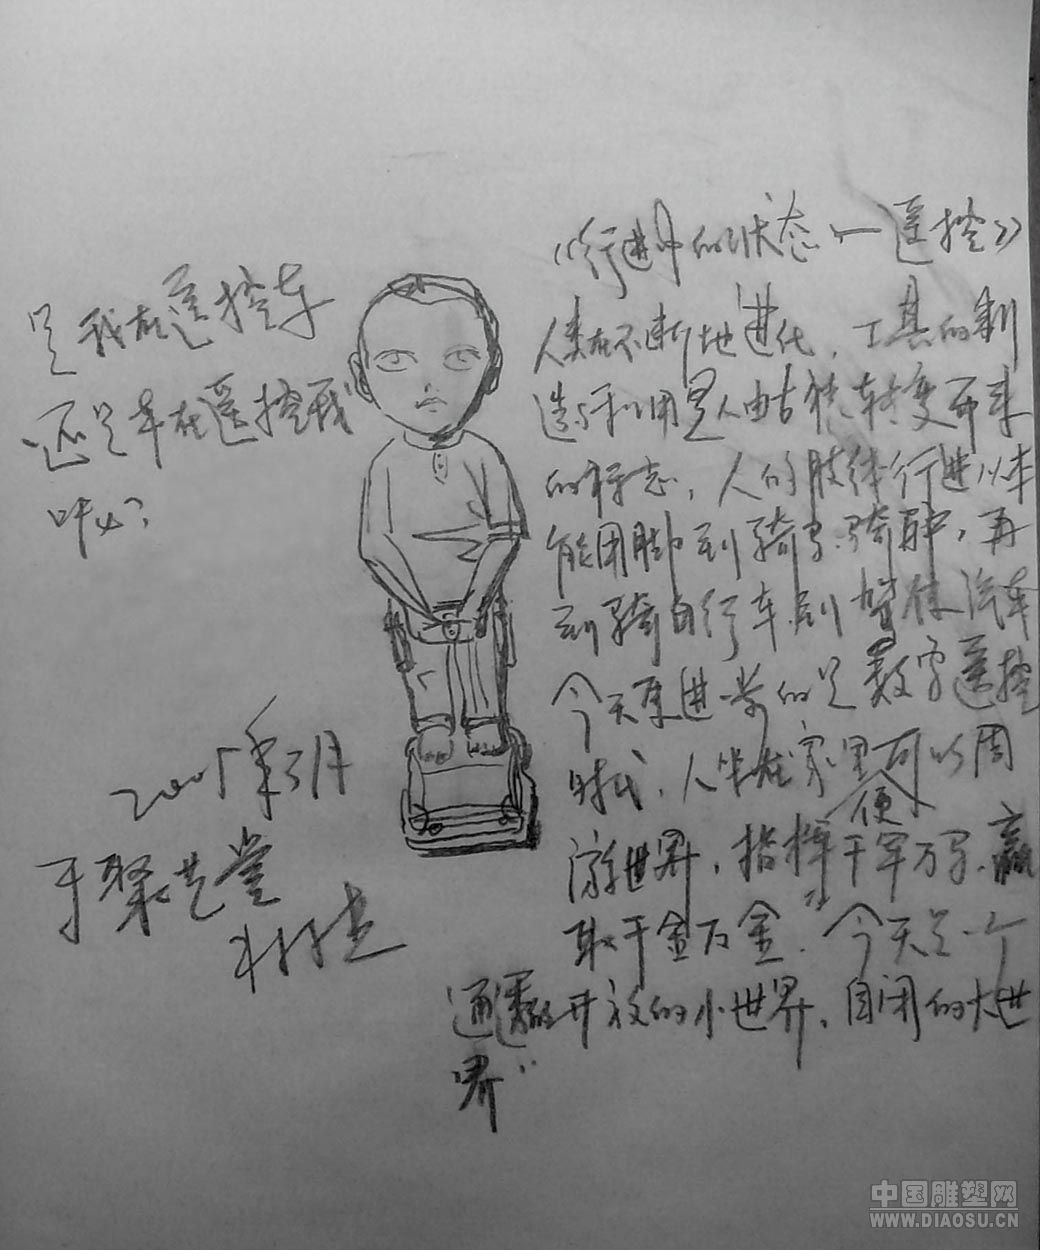 是我在遥控车
还是车在遥控我
呀?
《行进中的状态—遥控》
人类在不断地进化，工具的制
造与利用是人由古猿转变而来
的标志，人的肢体行进从本
能用脚到骑马、骑，再
到骑自行车到驾使汽车
今天更进一步的是数字遥控
时代，人坐在家里便可以周
游世界，指挥千军万马，赢
取千金万金。今天是一个
通透开放的小世界，自闭的大世
界"
2005年3月
于聚艺堂
中国雕塑网
WWW.DIAOSU.CN